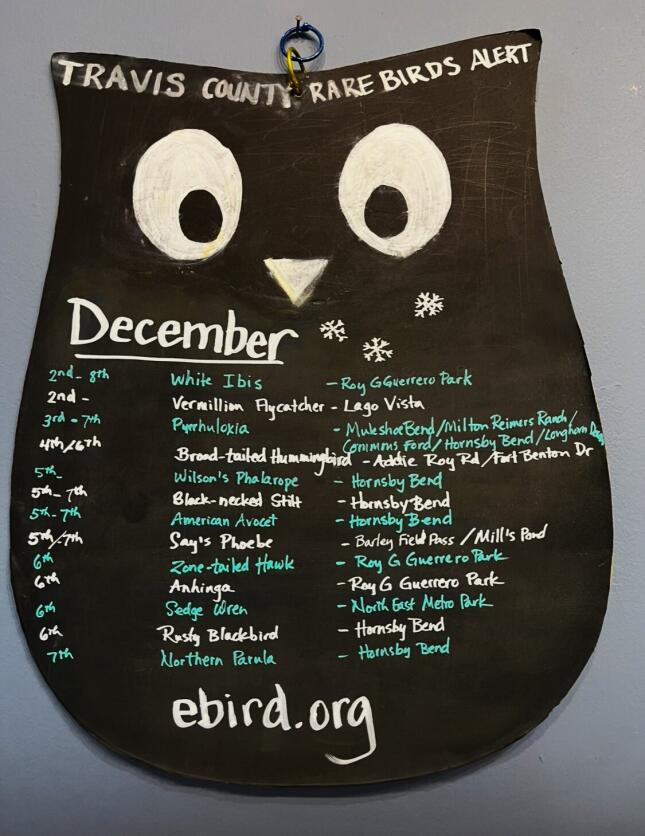 TRAVIS COUNTY RARE BIRDS ALERT
December
2nd - 8th White Ibis - Roy G Guerrero Park
2nd - Vermillion Flycatcher - Lago Vista
3rd - 7th Pyrrhuloxia - Muleshoe Bend/Milton Reimers Ranch/
Commons Ford/Hornsby Bend/Longhorn Dam
4th/6th Broad-tailed Hummingbird - Addie Roy Rd/Fort Benton Dr
5th- Wilson's Phalarope - Hornsby Bend
5th - 7th Black-necked Stilt - Hornsby Bend
5th - 7th American Avocet - Hornsby Bend
5th/7th Say's Phoebe - Barley Field Pass / Mill's Pond
6th Zone-tailed Hawk - Roy G Guerrero Park
6th Anhinga - Roy G Guerrero Park
6th Sedge Wren - North East Metro Park
6th Rusty Blackbird - Hornsby Bend
7th Northern Parula - Hornsby Bend
ebird.org